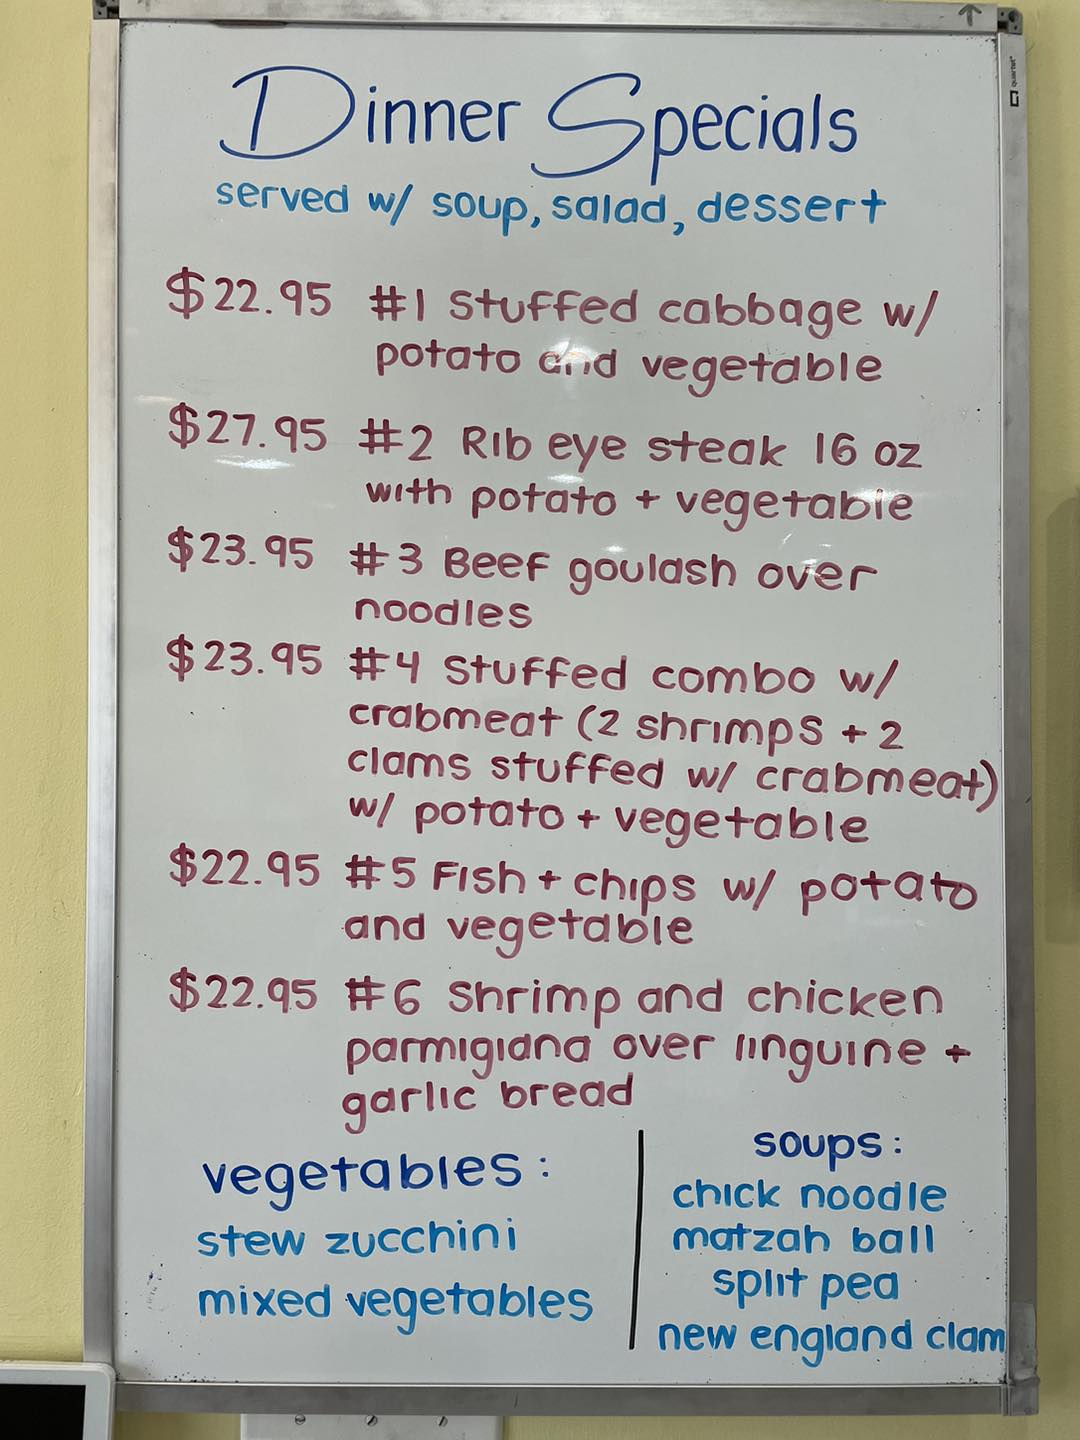 Dinner Specials
served w/ soup, salad, dessert
$22.95 #1 Stuffed cabbage w/
potato and vegetable
$27.95 #2 Rib eye steak 16 oz
with potato + vegetable
$23.95 #3 Beef goulash over
noodles
$23.95 #4 Stuffed combo w/
crabmeat (2 shrimps + 2
clams stuffed w/ crabmeat)
w/ potato + vegetable
$22.95 #5 Fish + chips w/ potato
and vegetable
$22.95 #6 Shrimp and chicken
parmigiana over linguine +
garlic bread
vegetables:
stew zucchini
mixed vegetables
soups:
chick noodle
matzah ball
split pea
new england clam
quartet